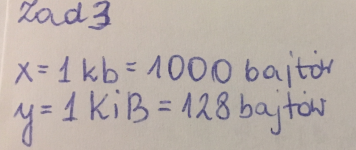 Zad 3
x = 1 kb = 1000 bajtów
y = 1 KiB = 128 bajtów